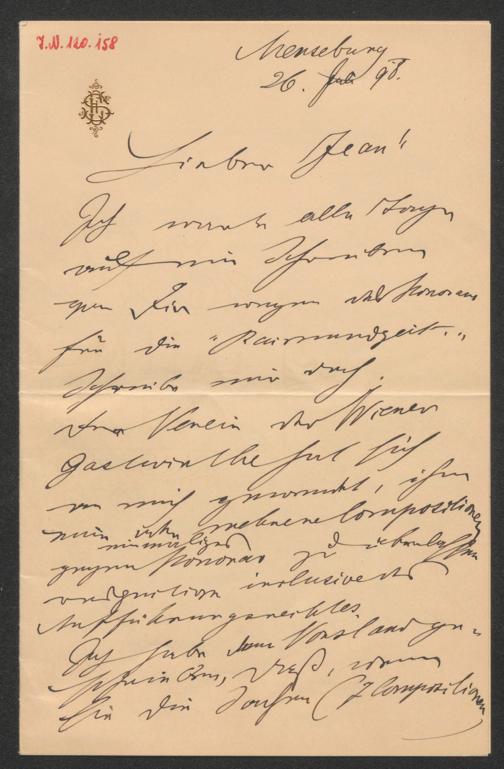 J.N. 120.158
26. Juli 98.
Lieber "Jean"!
Ich warte alle Tage
auf ein Schreiben
von Dir wegen des Honorars
für die "Raimundzeit".
Schreibe mir doch.
Der Verein der Wiener
Gastwirthe hat sich
an mich gewendet, ihm
mehrere Compositionen
gegen Honorar zu überlassen
inclusive des
Aufführungsrechtes.
Ich habe dem Vorstand ge-
schrieben, daß, wenn
Sie die Sachen (7 Compositionen